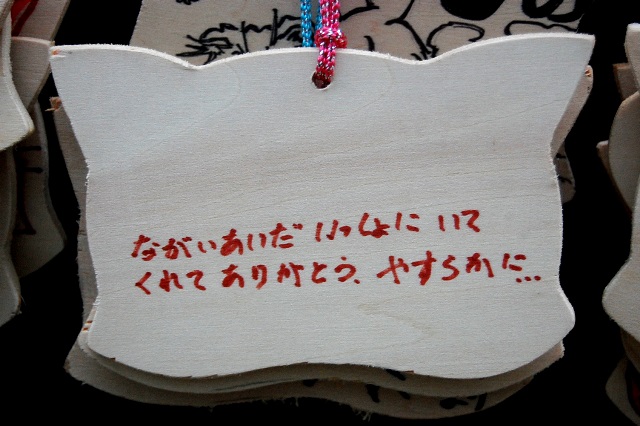 ながいあいだ いっしょに いて
くれて ありがとう、やすらかに...